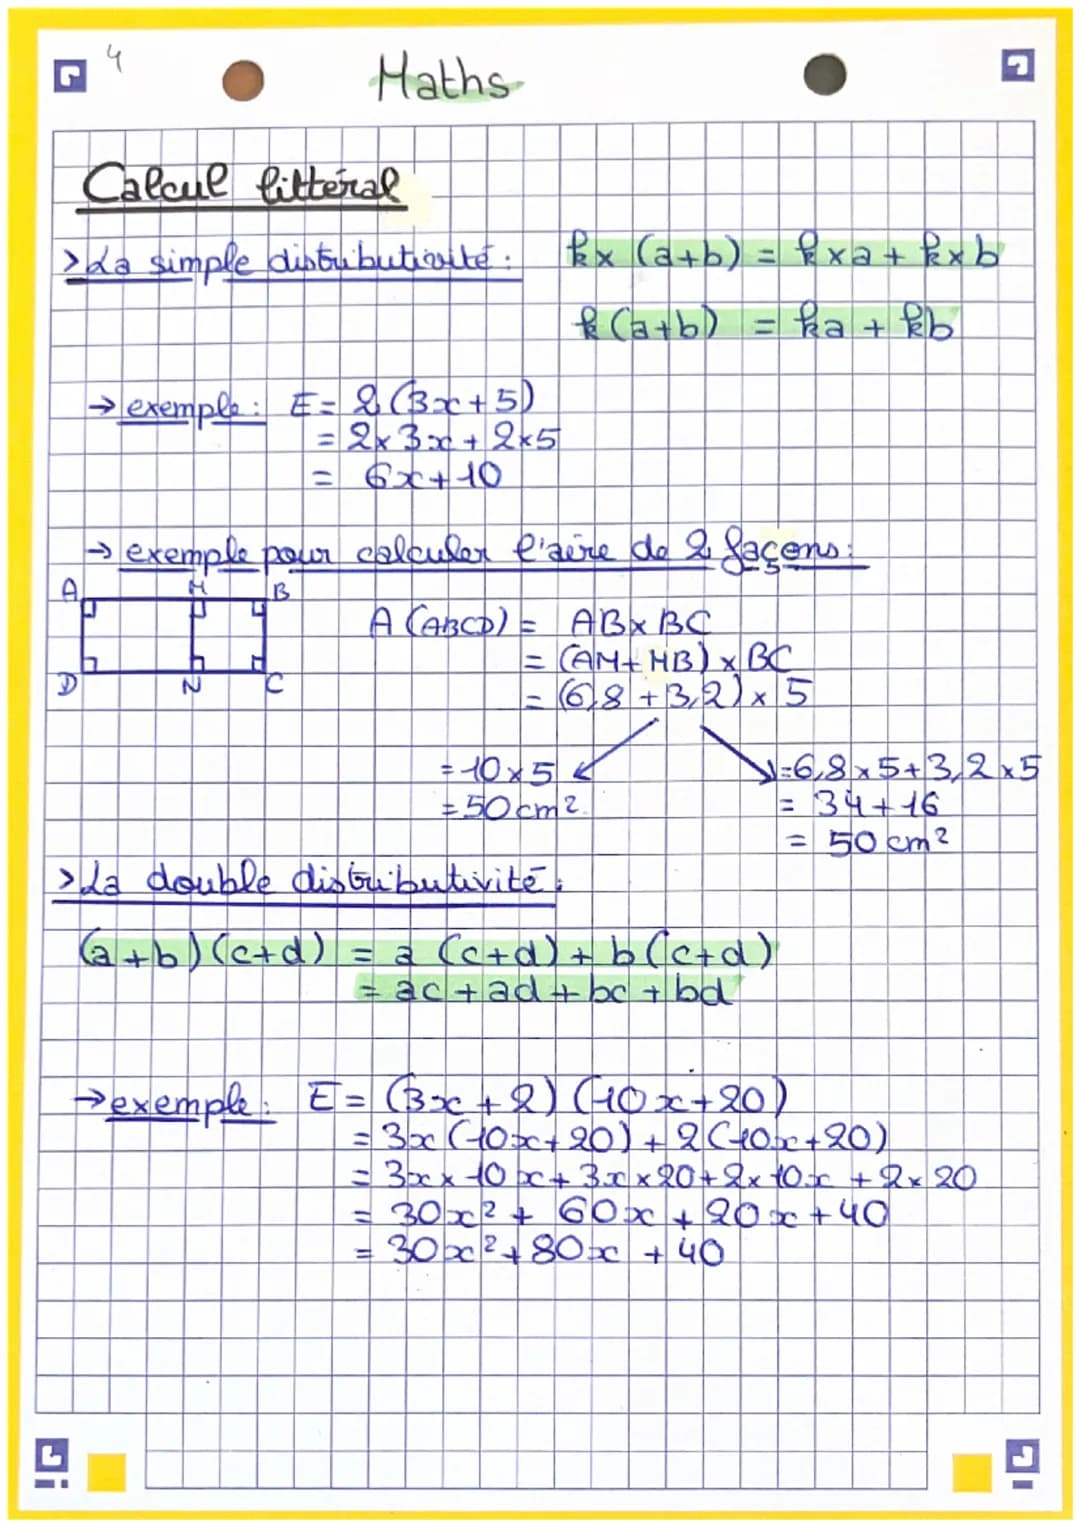 4
Maths
Calcul littéral
> La simple distributivité : k x (a+b) = k x a + k x b
k (a+b) = ka + kb
→ exemple : E = 2 (3x + 5)
= 2 x 3x + 2 x 5
= 6x + 10
→ exemple pour calculer l'aire de 2 façons :
A M B
D N C
A (ABCD) = AB x BC
= (AM + MB) x BC
= (6,8 + 3,2) x 5
= 10 x 5
= 50 cm²
= 6,8 x 5 + 3,2 x 5
= 34 + 16
= 50 cm²
> La double distributivité :
(a+b) (c+d) = a (c+d) + b (c+d)
= ac + ad + bc + bd
→ exemple : E = (3x + 2) (10x + 20)
= 3x (10x + 20) + 2 (10x + 20)
= 3x x 10x + 3x x 20 + 2 x 10x + 2 x 20
= 30x² + 60x + 20x + 40
= 30x² + 80x + 40